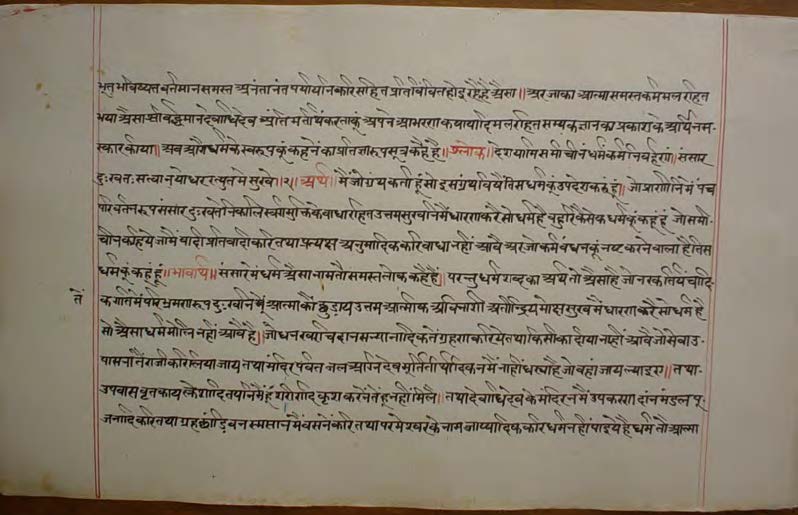 भूत भविष्यत वर्तमान समस्त अनंतानंत पर्यायनि करि सहित प्रतिबिंबित होइ रहै हैं अैसा॥ अर जाका आत्मा समस्त कर्ममल रहित
भया अैसा श्री वर्द्धमान देवाधिदेव अंतिम तीर्थंकर ताकूं अपने आभरण कषायादिमल रहित सम्यक ज्ञान का प्रकाश के अर्थि नम-
स्कार कीया॥ अब आगै धर्म के स्वरूपकूं कहनें का प्रतिज्ञारूप सूत्र कहै है॥ श्लोक॥ देशयामि समीचीनं धर्मं कर्मनिवर्हणं॥ संसार
दुःखतः सत्वान् यो धरत्युत्तमे सुखे॥२॥ अर्थ॥ मैं जो ग्रंथकर्ता हूं सो इस ग्रंथविषैं तिस धर्मकूं उपदेश करूं हूं॥ जो प्राणीनिनें पंच
परिवर्तनरूप संसार दुःखतें निकालि स्वर्ग मुक्ति के बाधारहित उत्तम सुखनिमें धारण करै सो धर्म है बहुरि कैसेक धर्मकूं कहूं हूं जो समी-
चीन कहिये जामें वादी प्रतिवादी करि तथा प्रत्यक्ष अनुमादिक करि बाधा नहीं आवै अर जो कर्मबंधनकूं नष्ट करनेवाला है तिस
धर्मकूं कहूं हूं॥ भावार्थ॥ संसार में धर्म अैसा नाम तौ समस्त लोक कहै हैं॥ परन्तु धर्म शब्द का अर्थ तो अैसा है जो नरक तिर्यंचादि-
क गतिमें परिभ्रमणरूप दुःखनितें आत्माकौं छुडाय उत्तम आत्मीक अविनाशी अतीन्द्रिय मोक्ष सुख में धारण करै सो धर्म है
तें
सो अैसा धर्म मोलि नहीं आवै है॥ जो धन खरचि दान सन्मानादिकतें ग्रहण करिये तथा किसी का दीया नहीं आवै जो सेवा उ-
पासनातैं राजी करि लिया जाय तथा मंदिर पर्वत जल अग्नि देवमूर्ति तीर्थादिकनमें नांहीं धर्या है जो वहां जाय ल्याइए॥ तथा-
उपवास वृत कायक्लेशादि तपनिमैं हूं शरीरादि कृश करनेंतें हू नहीं मिलै॥ तथा देवाधिदेव के मंदिरनमें उपकरण दांन मंडल पू-
जनादि करि तथा ग्रह छांडि वन स्मसानमैं वसनें करि तथा परमेश्वर के नाम जाप्यादिक करि धर्म नहीं पाइये है धर्म तौ आत्मा